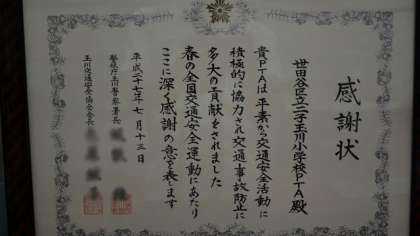 感謝状
世田谷区立二子玉川小学校PTA殿
貴PTAは平素から交通安全活動に
積極的に協力され交通事故防止に
多大の貢献をされました
春の全国交通安全運動にあたり
ここに深く感謝の意を表します
平成二十七年七月十三日
警視庁玉川警察署長
玉川交通安全協会会長